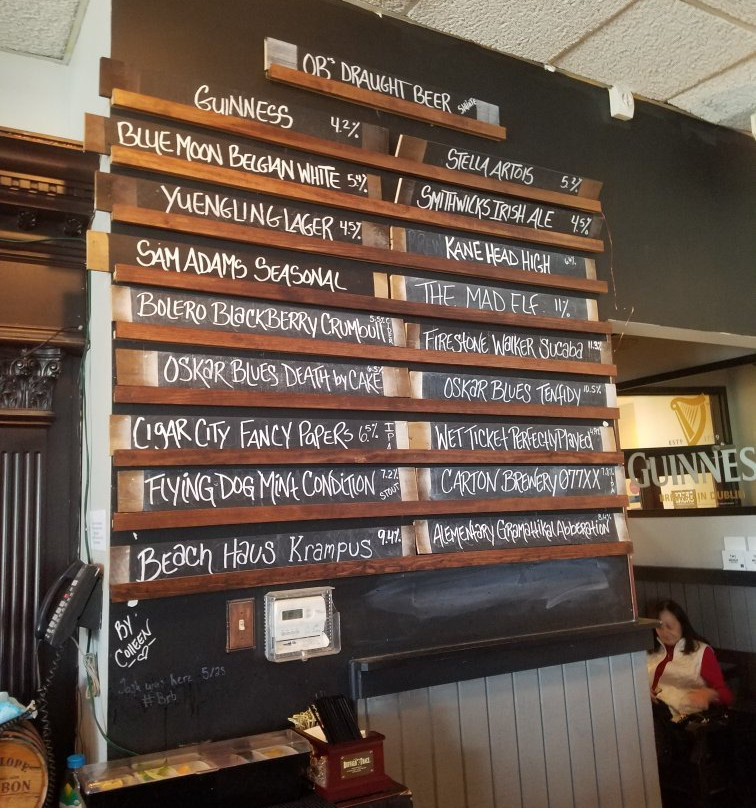 OB'S DRAUGHT BEER
GUINNESS 4.2%
BLUE MOON BELGIAN WHITE 5.4%
YUENGLING LAGER 4.5%
SAM ADAMS SEASONAL
BOLERO BLACKBERRY CRUMBULL 5.5%
OSKAR BLUES DEATH by CAKE 6.5%
CIGAR CITY FANCY PAPERS 6.5% IPA
FLYING DOG MINT CONDITION 7.2% STOUT
BEACH HAUS KRAMPUS 9.4%
STELLA ARTOIS 5.2%
SMITHWICKS IRISH ALE 4.5%
KANE HEAD HIGH
THE MAD ELF 11%
FIRESTONE WALKER SUCABA 11.3%
OSKAR BLUES TENFIDY 10.5%
WET TICKET PERFECTLY PLAYED
CARTON BREWERY 077XX
ALEMENTARY GRAMATTIKAL ABBERATION
BY COLLEEN
Josh was here 5/25
#Brb
ESTD 1759
GUINNES
BREWED IN DUBLIN
BUFFALO TRACE
LOPE
BON